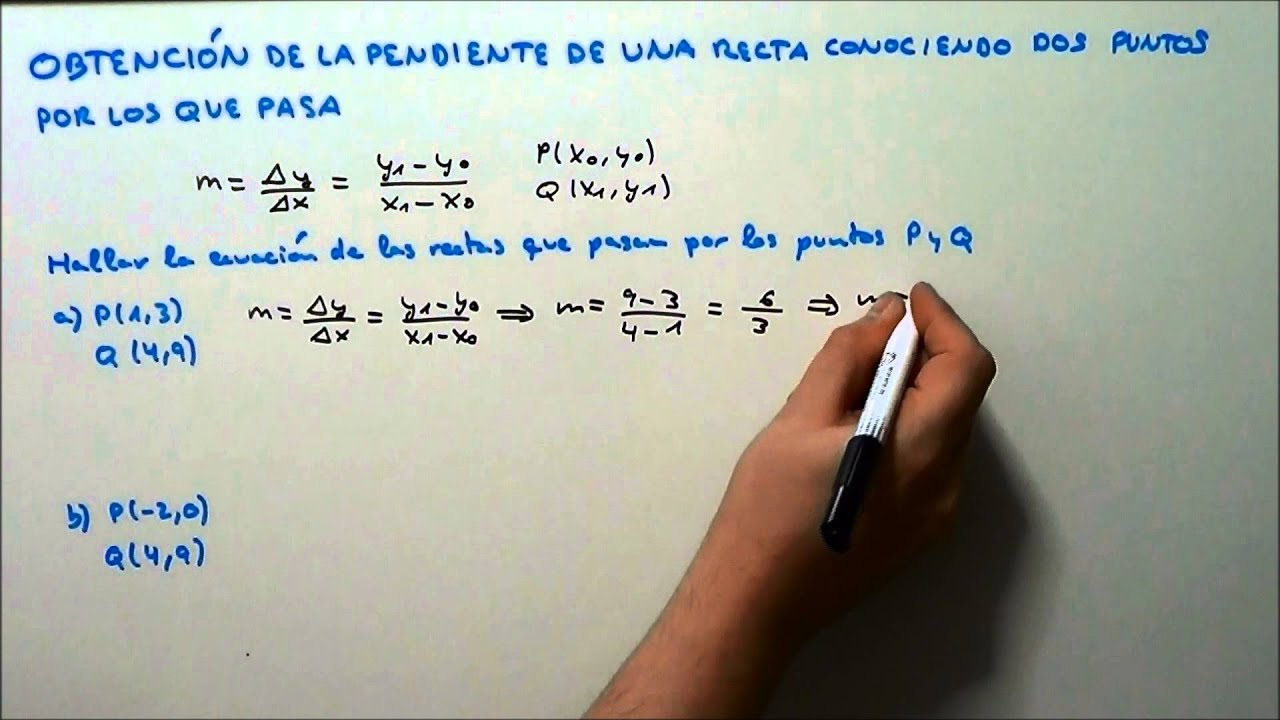 OBTENCIÓN DE LA PENDIENTE DE UNA RECTA CONOCIENDO DOS PUNTOS
POR LOS QUE PASA
m = Δy/Δx = y1 - y0/x1 - x0 P(x0, y0)
Q(x1, y1)
Hallar la ecuación de las rectas que pasan por los puntos P y Q
a) P(1,3) m = Δy/Δx = y1 - y0/x1 - x0 ⇒ m = 9 - 3/4 - 1 = 6/3 ⇒ m
Q(4,9)
b) P(-2,0)
Q(4,9)